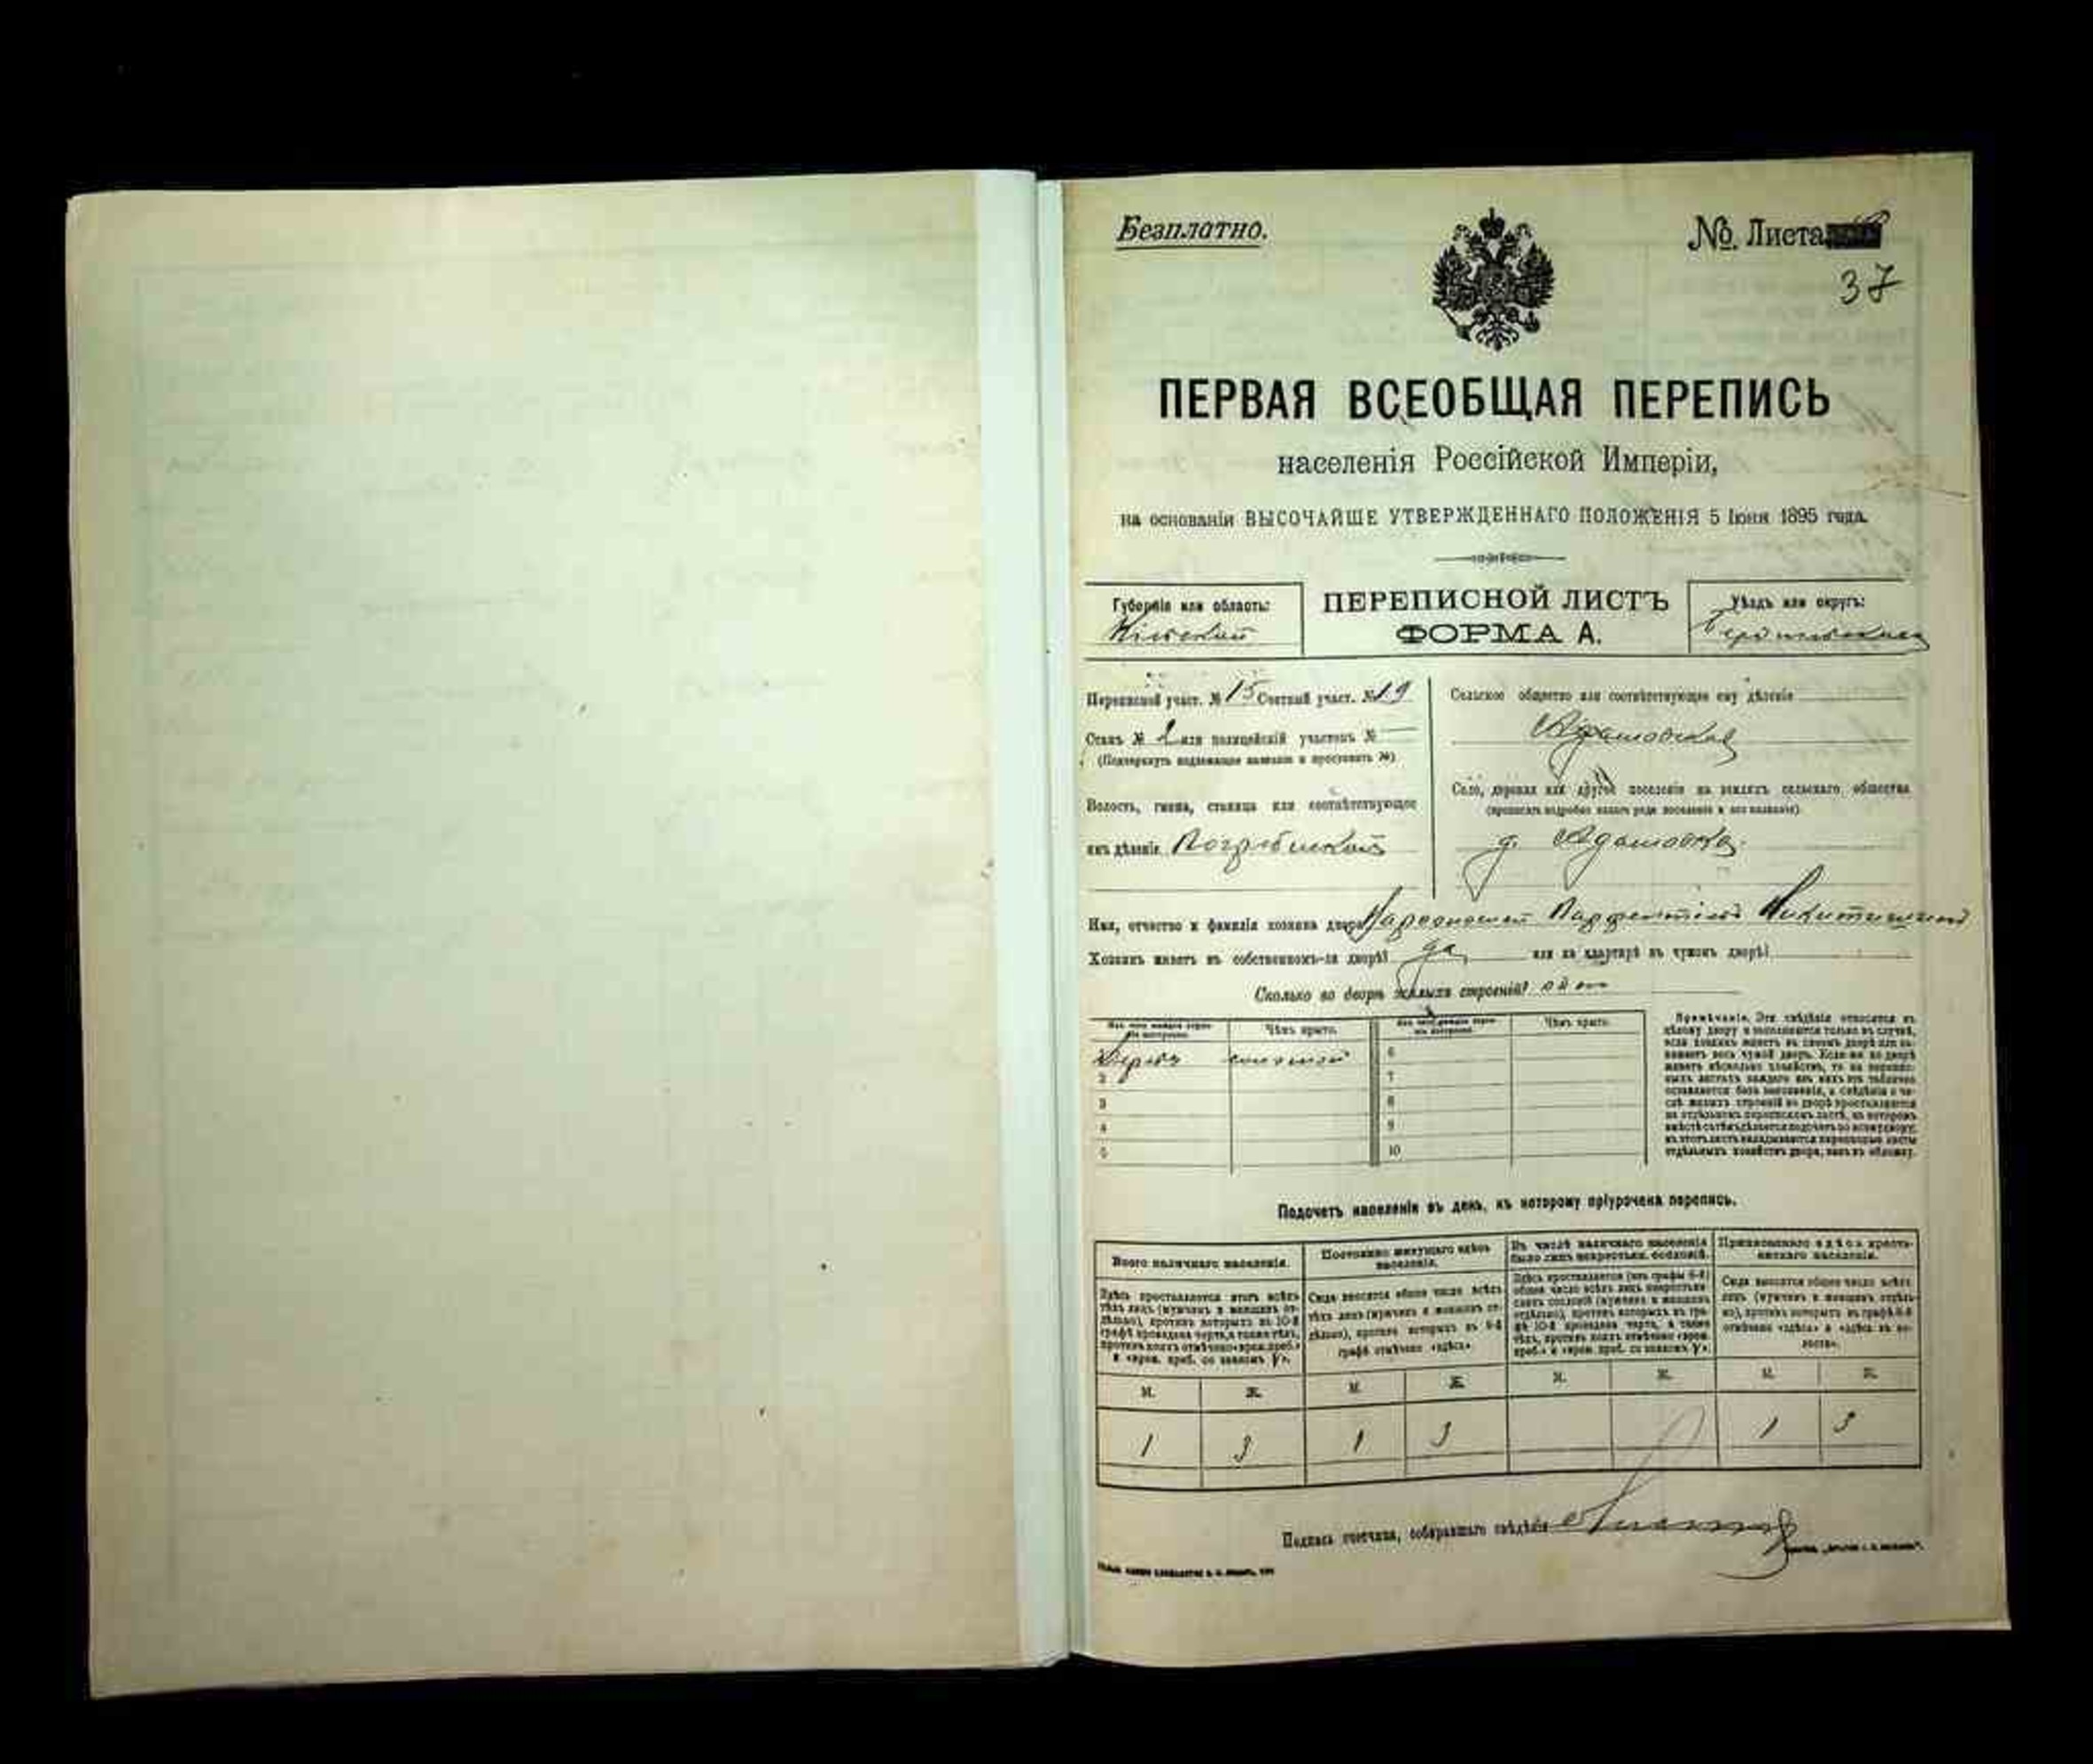 Безплатно.
№. Листа
37
ПЕРВАЯ ВСЕОБЩАЯ ПЕРЕПИСЬ
населенія Россійской Имперіи,
на основаніи ВЫСОЧАЙШЕ УТВЕРЖДЕННАГО ПОЛОЖЕНІЯ 5 Іюня 1895 года.
Губернія или область:
Кіевская
ПЕРЕПИСНОЙ ЛИСТЪ
ФОРМА А.
Уѣздъ или округъ:
Переписной участ. № 15 Счетный участ. № 19
Станъ № 2 или полицейскій участокъ №
(Подчеркнуть надлежащее названіе и проставить №)
Волость, гмина, станица или соотвѣтствующее
имъ дѣленіе Погребиская
Сельское общество или соотвѣтствующее ему дѣленіе
Адамовское
Село, деревня или другое поселеніе на земляхъ сельскаго общества
(прописать подробно какого рода поселеніе и его названіе)
д. Адамовка
Имя, отчество и фамилія хозяина двора
Хозяинъ живетъ въ собственномъ-ли дворѣ? да или на квартирѣ въ чужомъ дворѣ?
Сколько во дворѣ жилыхъ строеній? одно
Изъ чего каждое строеніе построено.
Чѣмъ крыто.
Изъ чего каждое строеніе построено.
Чѣмъ крыто.
соломой 6
2 7
3 8
4 9
5 10
Примѣчаніе. Эти свѣдѣнія относятся къ
цѣлому двору и заполняются только въ случаѣ,
если хозяинъ живетъ въ своемъ дворѣ или за-
нимаетъ весь чужой дворъ. Если же во дворѣ
живетъ нѣсколько хозяйствъ, то на перепис-
ныхъ листахъ каждаго изъ нихъ эта табличка
оставляется безъ заполненія, а свѣдѣнія о чи-
слѣ жилыхъ строеній во дворѣ проставляются
на отдѣльномъ переписномъ листѣ, на которомъ
вмѣстѣ съ тѣмъ дѣлается подсчетъ по всему двору;
въ этотъ листъ вкладываются переписные листы
отдѣльныхъ хозяйствъ двора, какъ въ обложку.
Подсчетъ населенія въ день, къ которому пріурочена перепись.
Всего наличнаго населенія.
Постоянно живущаго здѣсь населенія.
Въ числѣ наличнаго населенія было лицъ некрестьян. сословій.
Приписаннаго здѣсь крестьянскаго населенія.
Здѣсь проставляется итогъ всѣхъ
тѣхъ лицъ (мужчинъ и женщинъ от-
дѣльно), противъ которыхъ въ 10-й
графѣ проведена черта, а также тѣхъ,
противъ коихъ отмѣчено «врем. преб.»
Сюда вносится общее число всѣхъ
тѣхъ лицъ (мужчинъ и женщинъ от-
дѣльно), противъ которыхъ въ 9-й
графѣ отмѣчено «здѣсь».
Сюда вносится общее число всѣхъ
лицъ (мужчинъ и женщинъ отдѣль-
но), противъ которыхъ въ графѣ 8-й
отмѣчено «здѣсь» и «здѣсь въ во-
лости».
М. Ж. М. Ж. М. Ж. М. Ж.
1 3 1 3 1 3
Подпись счетчика, собиравшаго свѣдѣнія